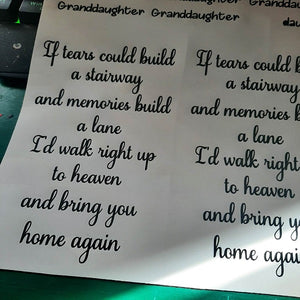 Granddaughter Granddaughter
If tears could build
a stairway
and memories build
a lane
I'd walk right up
to heaven
and bring you
home again
If tears could
a stairway
and memories
a lane
I'd walk right
to heaven
and bring
home again